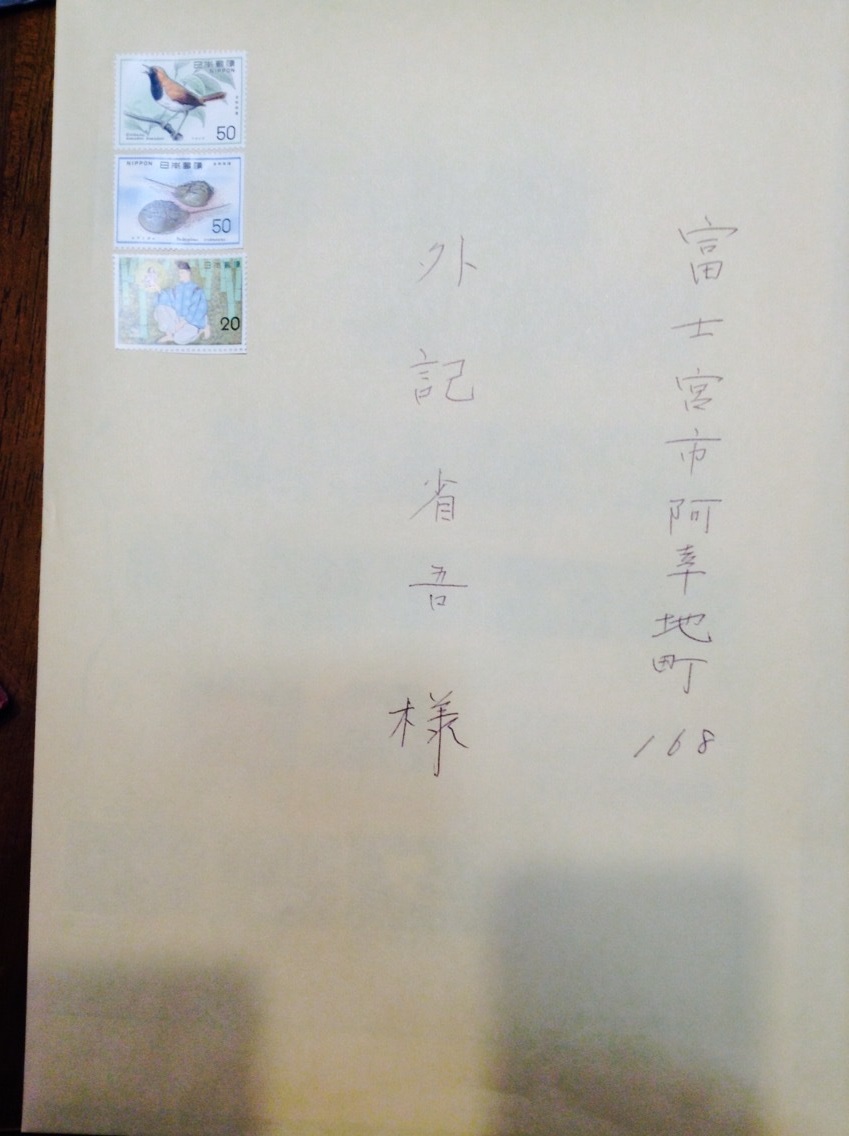 富士宮市阿幸地町168
外記省吾様
日本郵便
NIPPON
50
NIPPON 日本郵便
50
日本郵便
20